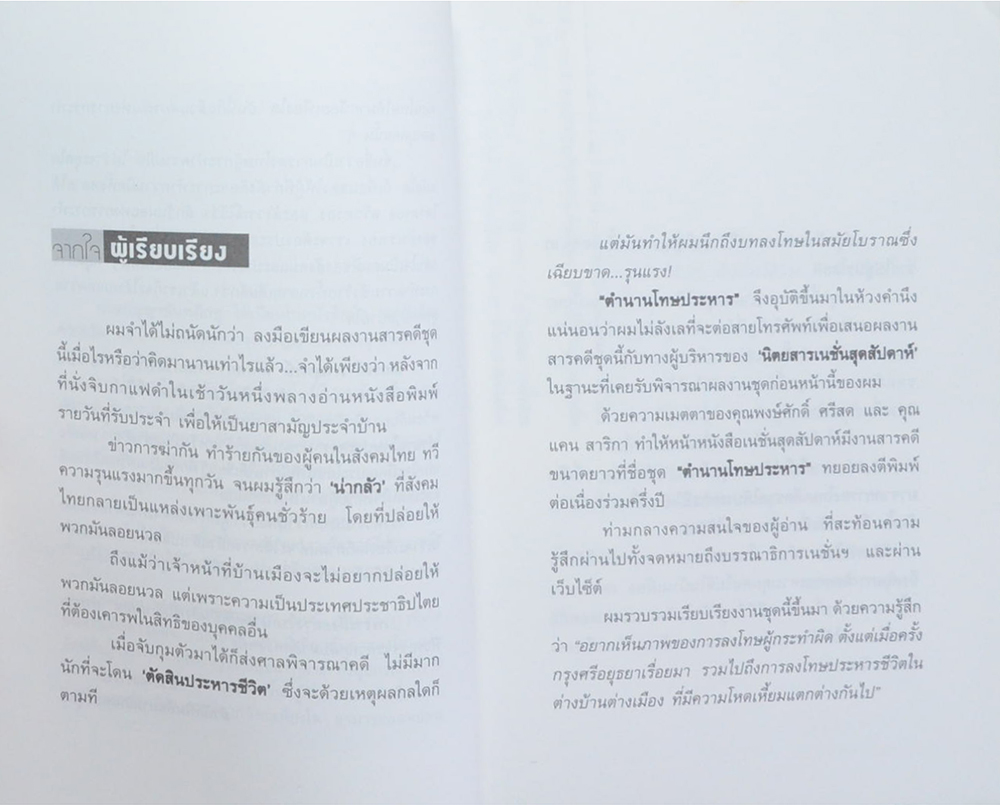 จากใจ ผู้เรียบเรียง
ผมจำได้ไม่ถนัดนักว่า ลงมือเขียนผลงานสารคดีชุด
นี้เมื่อไรหรือว่าคิดมานานเท่าไรแล้ว...จำได้เพียงว่า หลังจาก
ที่นั่งจิบกาแฟดำในเช้าวันหนึ่งพลางอ่านหนังสือพิมพ์
รายวันที่รับประจำ เพื่อให้เป็นยาสามัญประจำบ้าน
ข่าวการฆ่ากัน ทำร้ายกันของผู้คนในสังคมไทย ทวี
ความรุนแรงมากขึ้นทุกวัน จนผมรู้สึกว่า ‘น่ากลัว’ ที่สังคม
ไทยกลายเป็นแหล่งเพาะพันธุ์คนชั่วร้าย โดยที่ปล่อยให้
พวกมันลอยนวล
ถึงแม้ว่าเจ้าหน้าที่บ้านเมืองจะไม่อยากปล่อยให้
พวกมันลอยนวล แต่เพราะความเป็นประเทศประชาธิปไตย
ที่ต้องเคารพในสิทธิของบุคคลอื่น
เมื่อจับกุมตัวมาได้ก็ส่งศาลพิจารณาคดี ไม่มีมาก
นักที่จะโดน ‘ตัดสินประหารชีวิต’ ซึ่งจะด้วยเหตุผลกลใดก็
ตามที
แต่มันทำให้ผมนึกถึงบทลงโทษในสมัยโบราณซึ่ง
เฉียบขาด...รุนแรง!
“ตำนานโทษประหาร” จึงอุบัติขึ้นมาในห้วงคำนึง
แน่นอนว่าผมไม่ลังเลที่จะต่อสายโทรศัพท์เพื่อเสนอผลงาน
สารคดีชุดนี้กับทางผู้บริหารของ ‘นิตยสารเนชั่นสุดสัปดาห์’
ในฐานะที่เคยรับพิจารณาผลงานชุดก่อนหน้านี้ของผม
ด้วยความเมตตาของคุณพงษ์ศักดิ์ ศรีสด และ คุณ
แคน สาริกา ทำให้หน้าหนังสือเนชั่นสุดสัปดาห์มีงานสารคดี
ขนาดยาวที่ชื่อชุด “ตำนานโทษประหาร” ทยอยลงตีพิมพ์
ต่อเนื่องร่วมครึ่งปี
ท่ามกลางความสนใจของผู้อ่าน ที่สะท้อนความ
รู้สึกผ่านไปทั้งจดหมายถึงบรรณาธิการเนชั่นฯ และผ่าน
เว็บไซต์
ผมรวบรวมเรียบเรียงงานชุดนี้ขึ้นมา ด้วยความรู้สึก
ว่า “อยากเห็นภาพของการลงโทษผู้กระทำผิด ตั้งแต่เมื่อครั้ง
กรุงศรีอยุธยาเรื่อยมา รวมไปถึงการลงโทษประหารชีวิตใน
ต่างบ้านต่างเมือง ที่มีความโหดเหี้ยมแตกต่างกันไป”